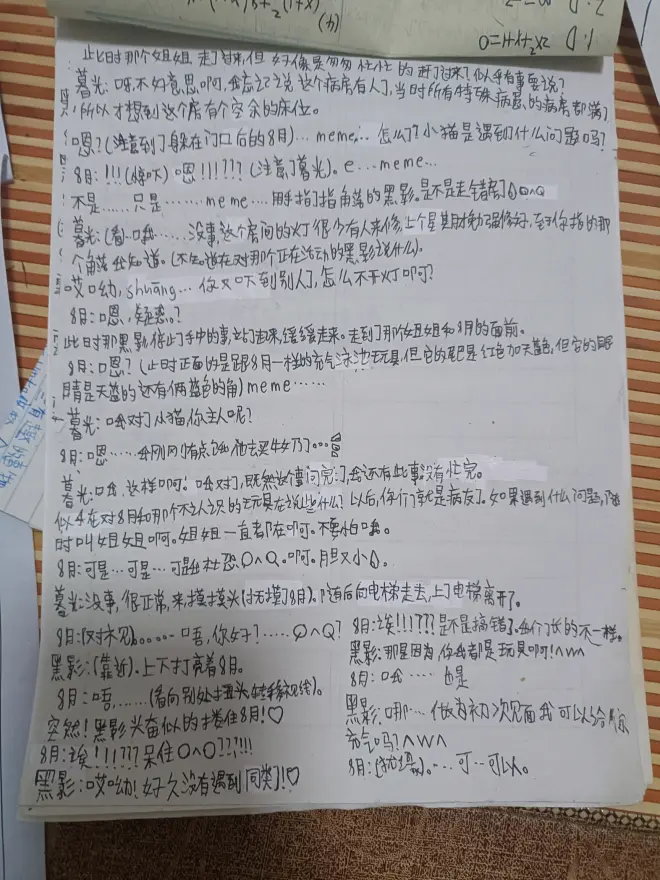 1.D 2x²+x+1=0
此时那个姐姐走了过来,但好像是匆匆忙忙的赶了过来?似乎有事要说?
暮光:呀,不好意思啊,我忘记说这个病房有人了,当时所有特殊病患的病房都满了
所以才想到这个房有个空余的床位。
嗯?(注意到了躲在门口后的8月)…meme… 怎么了?小猫是遇到什么问题吗?
8月:!!!(惊吓)嗯!!!???(注意了暮光)。e…meme…
不是……只是………meme…用手指了指角落的黑影。是不是走错房了
暮光:(看)哦……没事,这个房间的灯很少有人来修,上个星期才勉强修好,至于你指的那
个角落我知道。(不知道在对那个正在活动的黑影说什么)。
哎呦,shuāng…你又吓到别人了,怎么不开灯啊?
8月:嗯,疑惑。?
此时那黑影停止手中的事,站了起来,缓缓走来。走到了那个姐姐和8月的面前。
8月:嗯?(此时正面的是跟8月一样的充气泳池玩具,但它的尾巴是红色加天蓝色,但它的眼
睛是天蓝的还有俩蓝色的角)meme……
暮光:哦对了小猫,你主人呢?
8月:嗯……我刚刚有点饿他去买牛奶了。。。
暮光:哦,这样啊!哦对了,既然这事问完了,我还有些事没有忙完。
似乎在对8月和那个不认识的玩具在说些什么?以后,你们就是病友了。如果遇到什么问题,随
时叫姐姐啊。姐姐一直都在啊。不要怕哦。
8月:可是…可是…可是我社恐O∧Q。啊。胆又小
暮光:没事,很正常,来摸摸头(抚摸了8月)。随后向电梯走去,上了电梯离开了。
8月:(对视)。。。。…唔,你好?……O∧Q?
黑影:(靠近).上下打量着8月。
8月:唔……(看向别处扭头转移视线)。
突然!黑影兴奋似的搂住8月!♡
8月:诶!!!???呆住O∧O???!!!
黑影:哎呦!好久没有遇到同类了!♡
8月:诶!!!???是不是搞错了。我们长的不一样。
黑影:那是因为,你我都是玩具啊!∧w∧
8月:哦……也是
黑影:哪…做为初次见面我可以给
充气吗?∧w∧
8月: …可…可以。